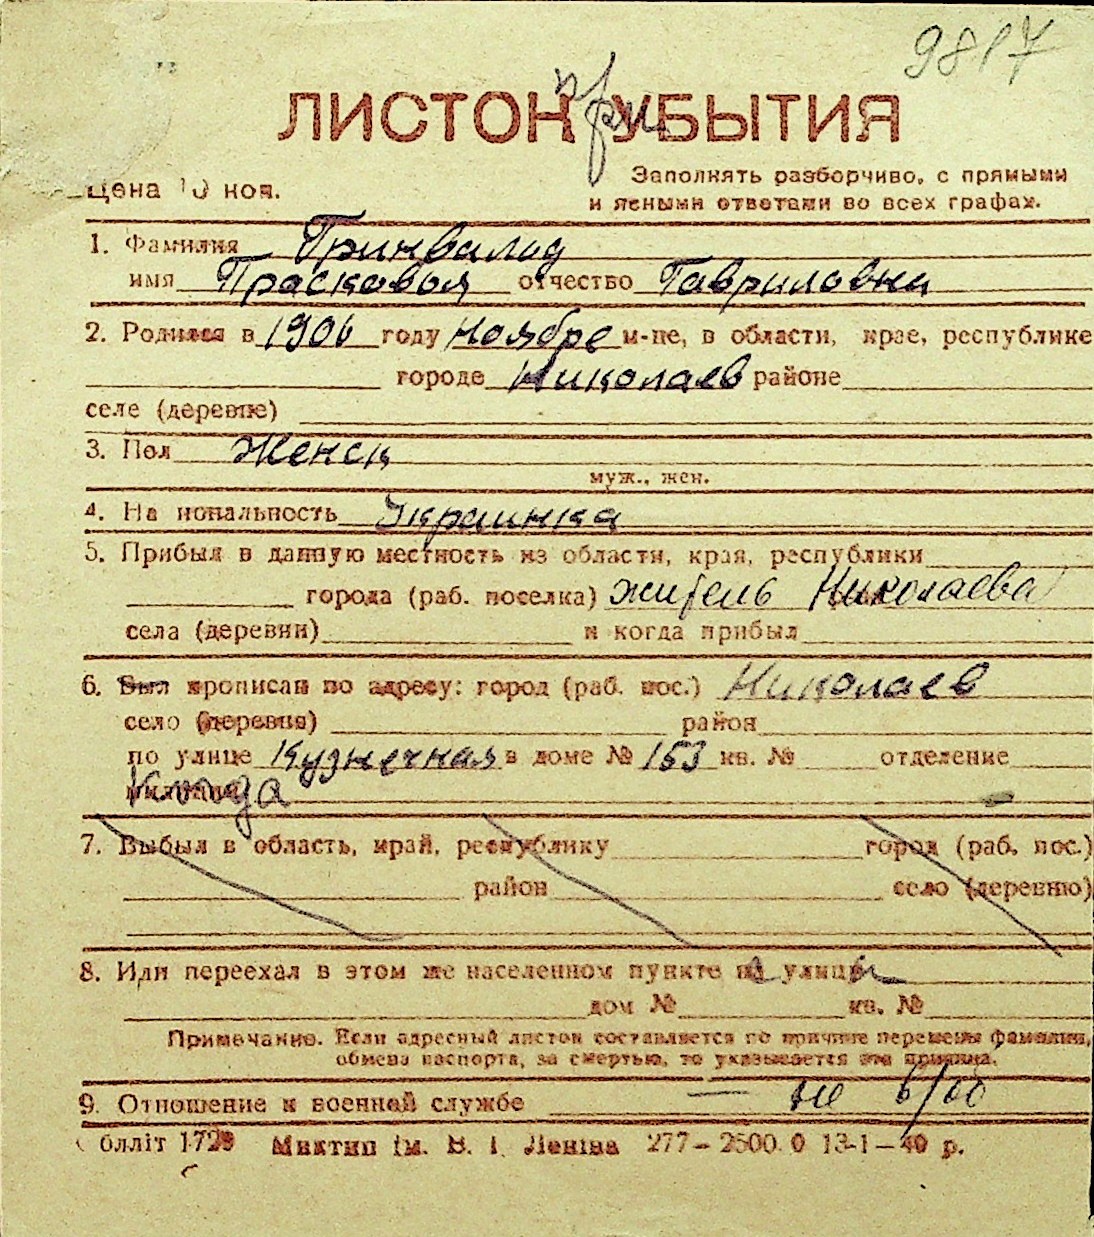 9817
ЛИСТОК при УБЫТИЯ
Цена 10 коп.
Заполнять разборчиво, с прямыми
и ясными ответами во всех графах.
1. Фамилия Гринвальд
имя Прасковья отчество Гавриловна
2. Родился в 1906 году ноябре м-це, в области, крае, республике
городе Николаев районе
селе (деревне)
3. Пол Женск
муж., жен.
4. На иональность Украинка
5. Прибыл в данную местность из области, края, республики
города (раб. поселка) житель Николаева
села (деревни) и когда прибыл
6. Был прописан по адресу: город (раб. пос.) Николаев
село (деревня) район
по улице Кузнечная в доме № 153 кв. № отделение
милиции
7. Выбыл в область, край, республику город (раб. пос.)
район село (деревню)
8. Или переехал в этом же населенном пункте на улицу
дом № кв. №
Примечание. Если адресный листок составляется по причине перемены фамилии,
обмена паспорта, за смертью, то указывается эта причина.
9. Отношение к военной службе — не в/об
бліт 1729 Миктип ім. В. І. Леніна 277–2500.0 13-1–40 р.